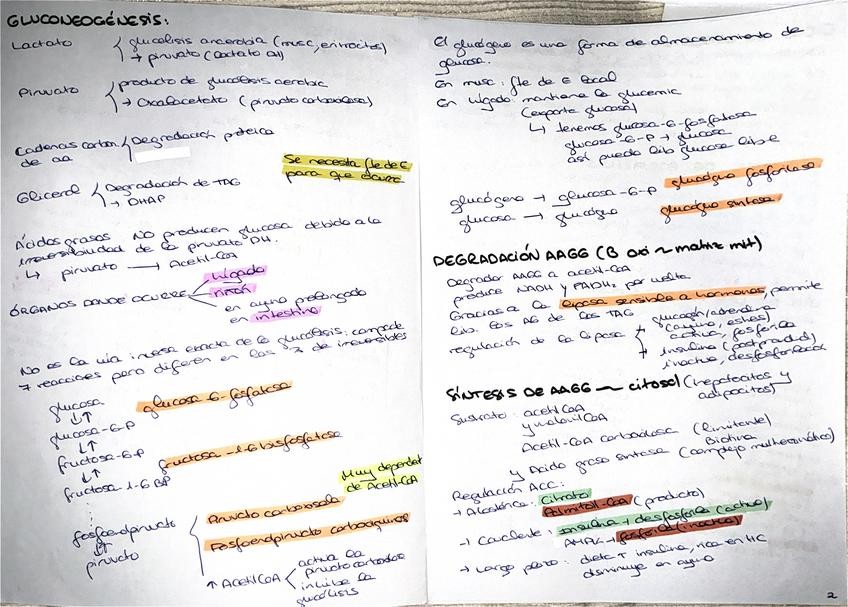 GLUCONEOGÉNESIS:
Lactato
glucolisis anaerobia (musc, eritrocitos)
→ piruvato (lactato DH)
Piruvato
producto de glucolisis aerobia
→ Oxalacetato (piruvato carboxilasa)
Cadenas carbon. de aa
Degradación proteica
Se necesita fte de E
para que ocurre
Glicerol
Degradación de TAG
→ DHAP
Ácidos grasos NO producen glucosa debido a la
irreversibilidad de la piruvato DH.
↳ piruvato → Acetil-CoA
ÓRGANOS DONDE OCURRE
hígado
riñón
en ayuno prolongado
en intestino
No es la vía inversa exacta de la glucólisis: comparte
7 reacciones pero difieren en las 3 de irreversibles
glucosa
glucosa-6-fosfatasa
glucosa-6-P
fructosa-6-P
fructosa-1-6 bisfosfatasa
fructosa-1-6 BP
Muy dependet
de Acetil-CoA
fosfoenolpiruvato
piruvato
Piruvato carboxilasa
Fosfoenolpiruvato carboxiquinasa
↑ Acetil CoA
activa la
piruvato carboxilasa
inhibe la
glucólisis
El glucógeno es una forma de almacenamiento de
glucosa.
En musc: fte de E local
En hígado: mantiene la glucemia
(exporta glucosa)
↳ tenemos glucosa-6-fosfatasa
glucosa-6-P → glucosa
así puedo lib glucosa libre
glucógeno → glucosa-6-P glucógeno fosforilasa
glucosa → glucógeno glucógeno sintasa
DEGRADACIÓN AAGG (B oxi ~ matriz mit)
Degradar AAGG a acetil-CoA
produce NADH y FADH2 por vuelta
Gracias a la lipasa sensible a hormonas, permite
lib. los AG de los TAG
regulación de la lipasa
glucagón/adrenalina
(ayuno, estrés)
activa, fosforila
insulina (postprandial)
inactiva, desfosforilada
SÍNTESIS DE AAGG ~ citosol (hepatocitos y
adipocitos)
Sustrato: acetil CoA
y malonil CoA
Acetil-CoA carboxilasa (limitante)
Biotina
y Acido graso sintasa (complejo multienzimático)
Regulación ACC:
→ Alostérica: Citrato
Palmitoil-CoA (producto)
→ Covalente: Insulina → desfosforila (activa)
AMPK → fosforila (inactiva)
→ Largo plazo: dieta ↑ insulina, rica en HC
disminuye en ayuno
2